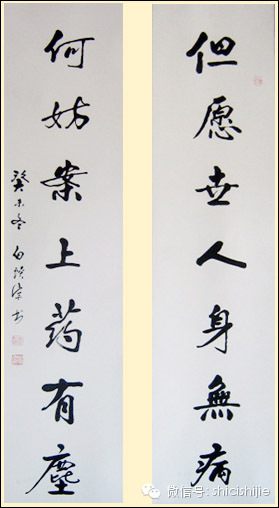 但愿世人身無病
何妨案上药有塵
癸未冬
微信号: shicishijie